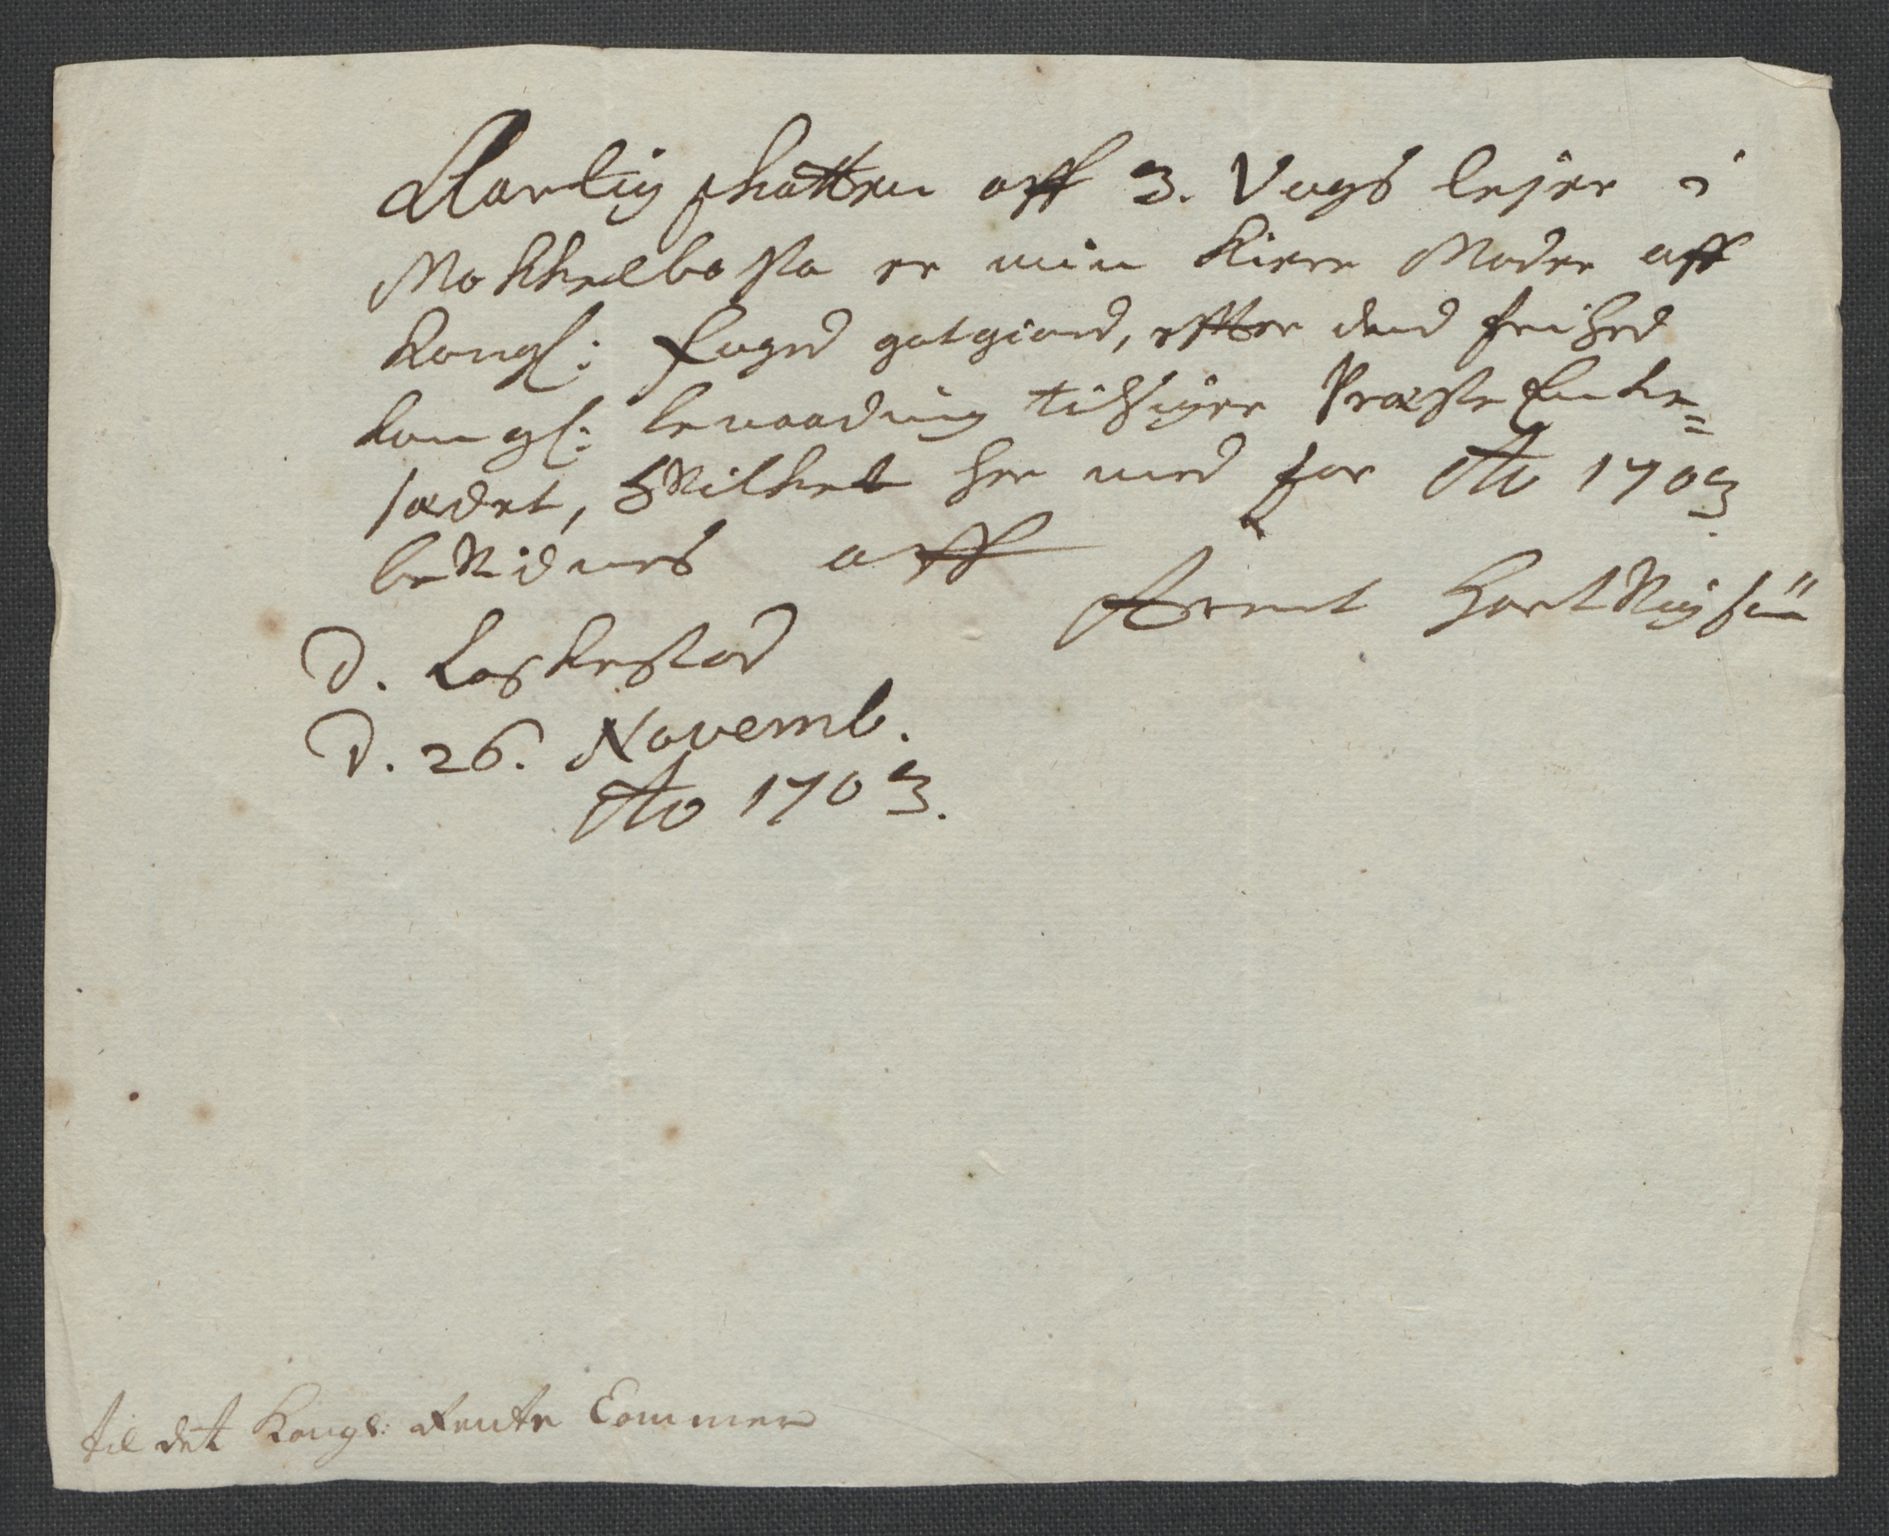 Aarlig skatten aff 3. Vogs lejer i
Mokkelbosta er min Kiere Moder aff
Kongl: Foged gotgiord, efter dend frihed
Kongl: benaading tilsiger Præste Enke=
sædet, hvilket her med for Ao 1703
bekidnes aff
Arent Hartvigsün
D. Laskestad
D. 26. Novemb.
Ao 1703.
til det Kongl: Rente Cammer